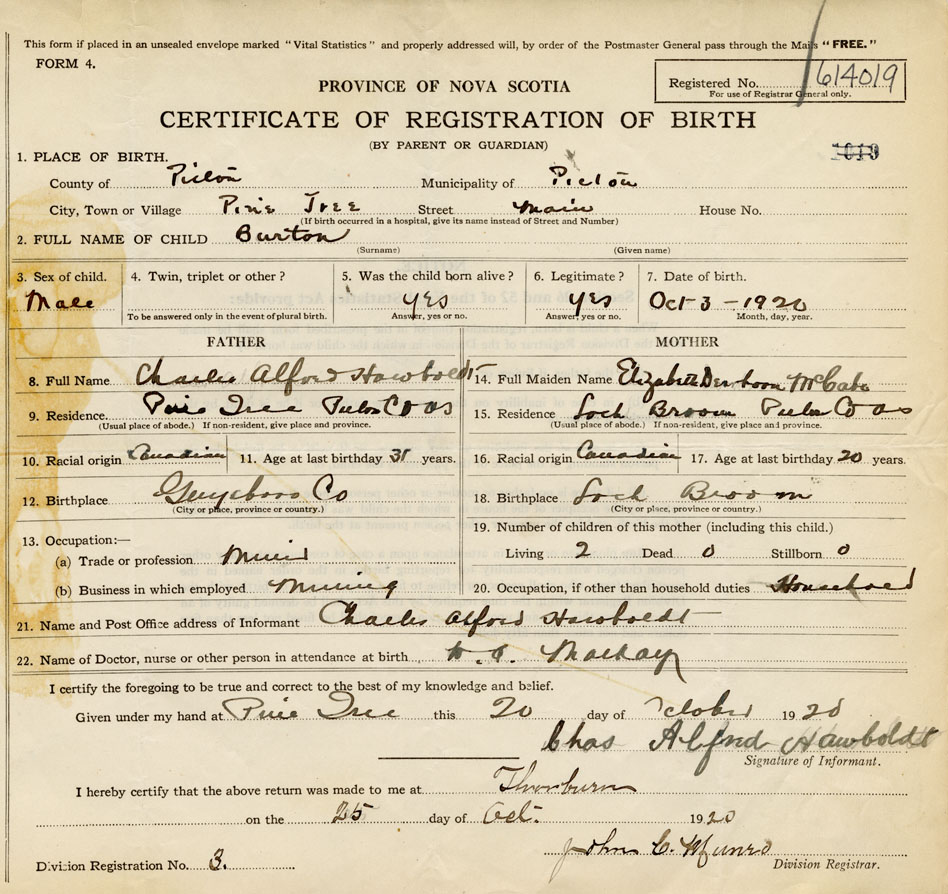 This form if placed in an unsealed envelope marked "Vital Statistics" and properly addressed will, by order of the Postmaster General pass through the Mails "FREE."
FORM 4.
PROVINCE OF NOVA SCOTIA
Registered No. 614019
For use of Registrar General only.
CERTIFICATE OF REGISTRATION OF BIRTH
(BY PARENT OR GUARDIAN)
1019
1. PLACE OF BIRTH.
County of Pictou Municipality of Pictou
City, Town or Village Pine Tree Street Main House No.
(If birth occurred in a hospital, give its name instead of Street and Number)
2. FULL NAME OF CHILD Burton
(Surname) (Given name)
3. Sex of child. 4. Twin, triplet or other? 5. Was the child born alive? 6. Legitimate? 7. Date of birth.
Male yes yes Oct 3 - 1920
To be answered only in the event of plural birth. Answer, yes or no. Answer, yes or no. Month, day, year.
FATHER MOTHER
8. Full Name Charles Alford Hawboldt 14. Full Maiden Name Elizabeth McCabe
9. Residence. Pine Tree Pictou Co NS 15. Residence Loch Broom Pictou Co NS
(Usual place of abode.) If non-resident, give place and province. (Usual place of abode.) If non-resident, give place and province.
10. Racial origin Canadian 11. Age at last birthday 31 years. 16. Racial origin Canadian 17. Age at last birthday 20 years.
12. Birthplace Guysboro Co 18. Birthplace Loch Broom
(City or place, province or country.) (City or place, province or country.)
19. Number of children of this mother (including this child.)
13. Occupation:—
Living 2 Dead 0 Stillborn 0
(a) Trade or profession Miner
(b) Business in which employed Mining 20. Occupation, if other than household duties Household
21. Name and Post Office address of Informant Charles Alford Hawboldt
22. Name of Doctor, nurse or other person in attendance at birth Mackay
I certify the foregoing to be true and correct to the best of my knowledge and belief.
Given under my hand at Pine Tree this 20 day of October 1920
Chas Alfred Hawboldt
Signature of Informant.
I hereby certify that the above return was made to me at Thorburn
on the 25 day of Oct. 1920
John C. Munro
Division Registration No. 3. Division Registrar.